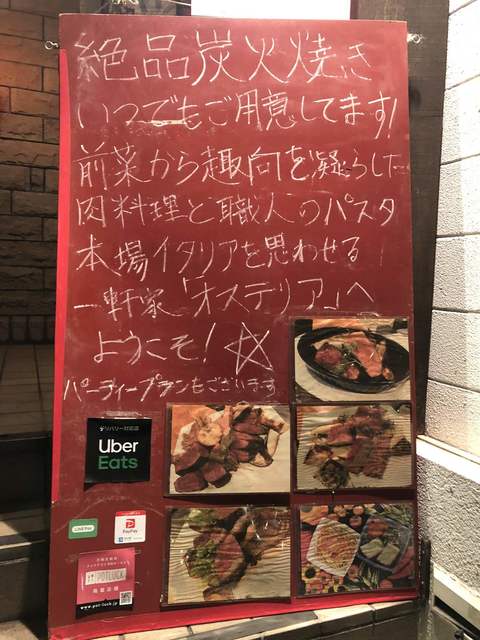 絶品炭火焼き
いつでもご用意してます!
前菜から趣向を凝らした
肉料理と職人のパスタ
本場イタリアを思わせる
一軒家「オステリア」へ
ようこそ!☆
パーティープランもございます
デリバリー対応店
Uber
Eats
LINE Pay
PayPay
POTLUCK
掲載店舗
www.pot-luck.jp